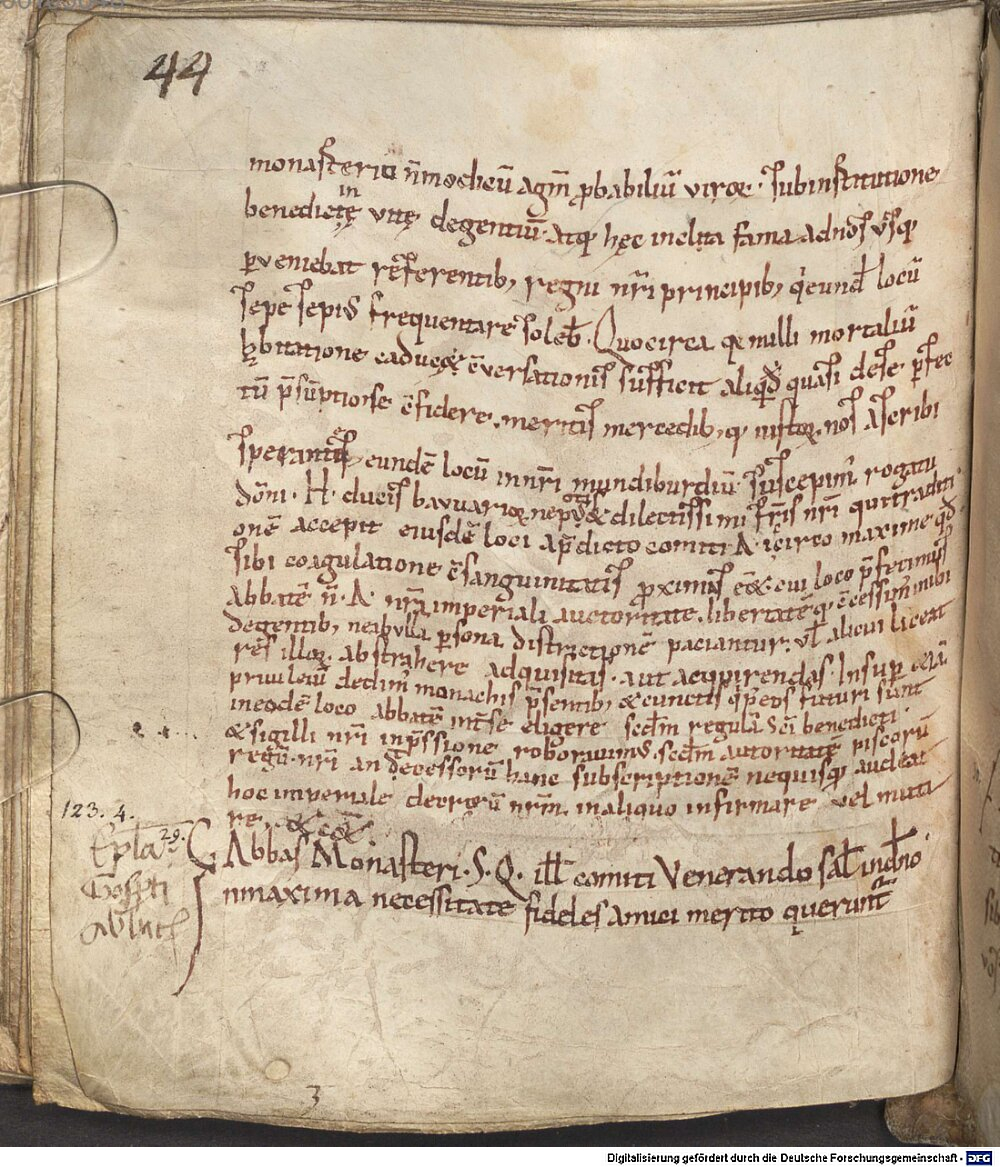 44
monasterio n̄ modicū agm̄ p̱babiliū viroꝝ · sub institutione
in
benedictę vitę degentiū · atq; hęc inclita fama ad nos usq;
perveniebat referentib; regni nr̄i principib; q̇ eund̄ locū
sepe sepius frequentare soleb̄t · Quocirca q̄ nulli mortaliū
caducę ꝯversationis sufficit aliqd̄ quasi de se perfec
tū p̄sūptiose ꝯfidere · meritis mercedib; q; iustoꝝ nos ascribi
sperantes eundē locū in nr̄i mundiburdiū suscepim̄ rogatu
dōni · H · ducis bavuarioꝝ nepotis & dilectissimi fr̄is nr̄i qui traditi
onē accepit eiusdē loci a p̄dicto comiti A · icirco maxime qd̄
sibi coagulatione ꝯsanguinitatis proximus eēt cui loco p̄fecimus
abbatē n̄ · A · nr̄a imperiali auctoritate · libertatē q; ꝯcessim̄ inibi
degentib; ne ab ulla persona districtionē paciantur · vl̄ alicui liceat
res illoꝝ abstrahere adquisitas · aut acquirendas · Insuper etiā
privileiū dedim̄ monachis p̄sentib; & cunctis q̇ p̱ eos futuri sunt
in eodē loco abbatē int̄ se eligere scdm̄ regulā sc̄i benedicti ·
& sigilli nr̄i inp̄ssione roboravimus · scdm̄ autoritatē priscorū
regū · nr̄i an decessorū hanc subscriptionē nequisq; audeat
hoc imperiale decretū nr̄m in aliquo infirmare vel muta
re
123. 4.
Epla 29.
Abbas Monasteri · S · Q · ill̄ comiti Venerando sal̄
In maxima necessitate fideles amici merito querunt̄
Gosperti
Abbatis
3
Digitalisierung gefördert durch die Deutsche Forschungsgemeinschaft - DFG